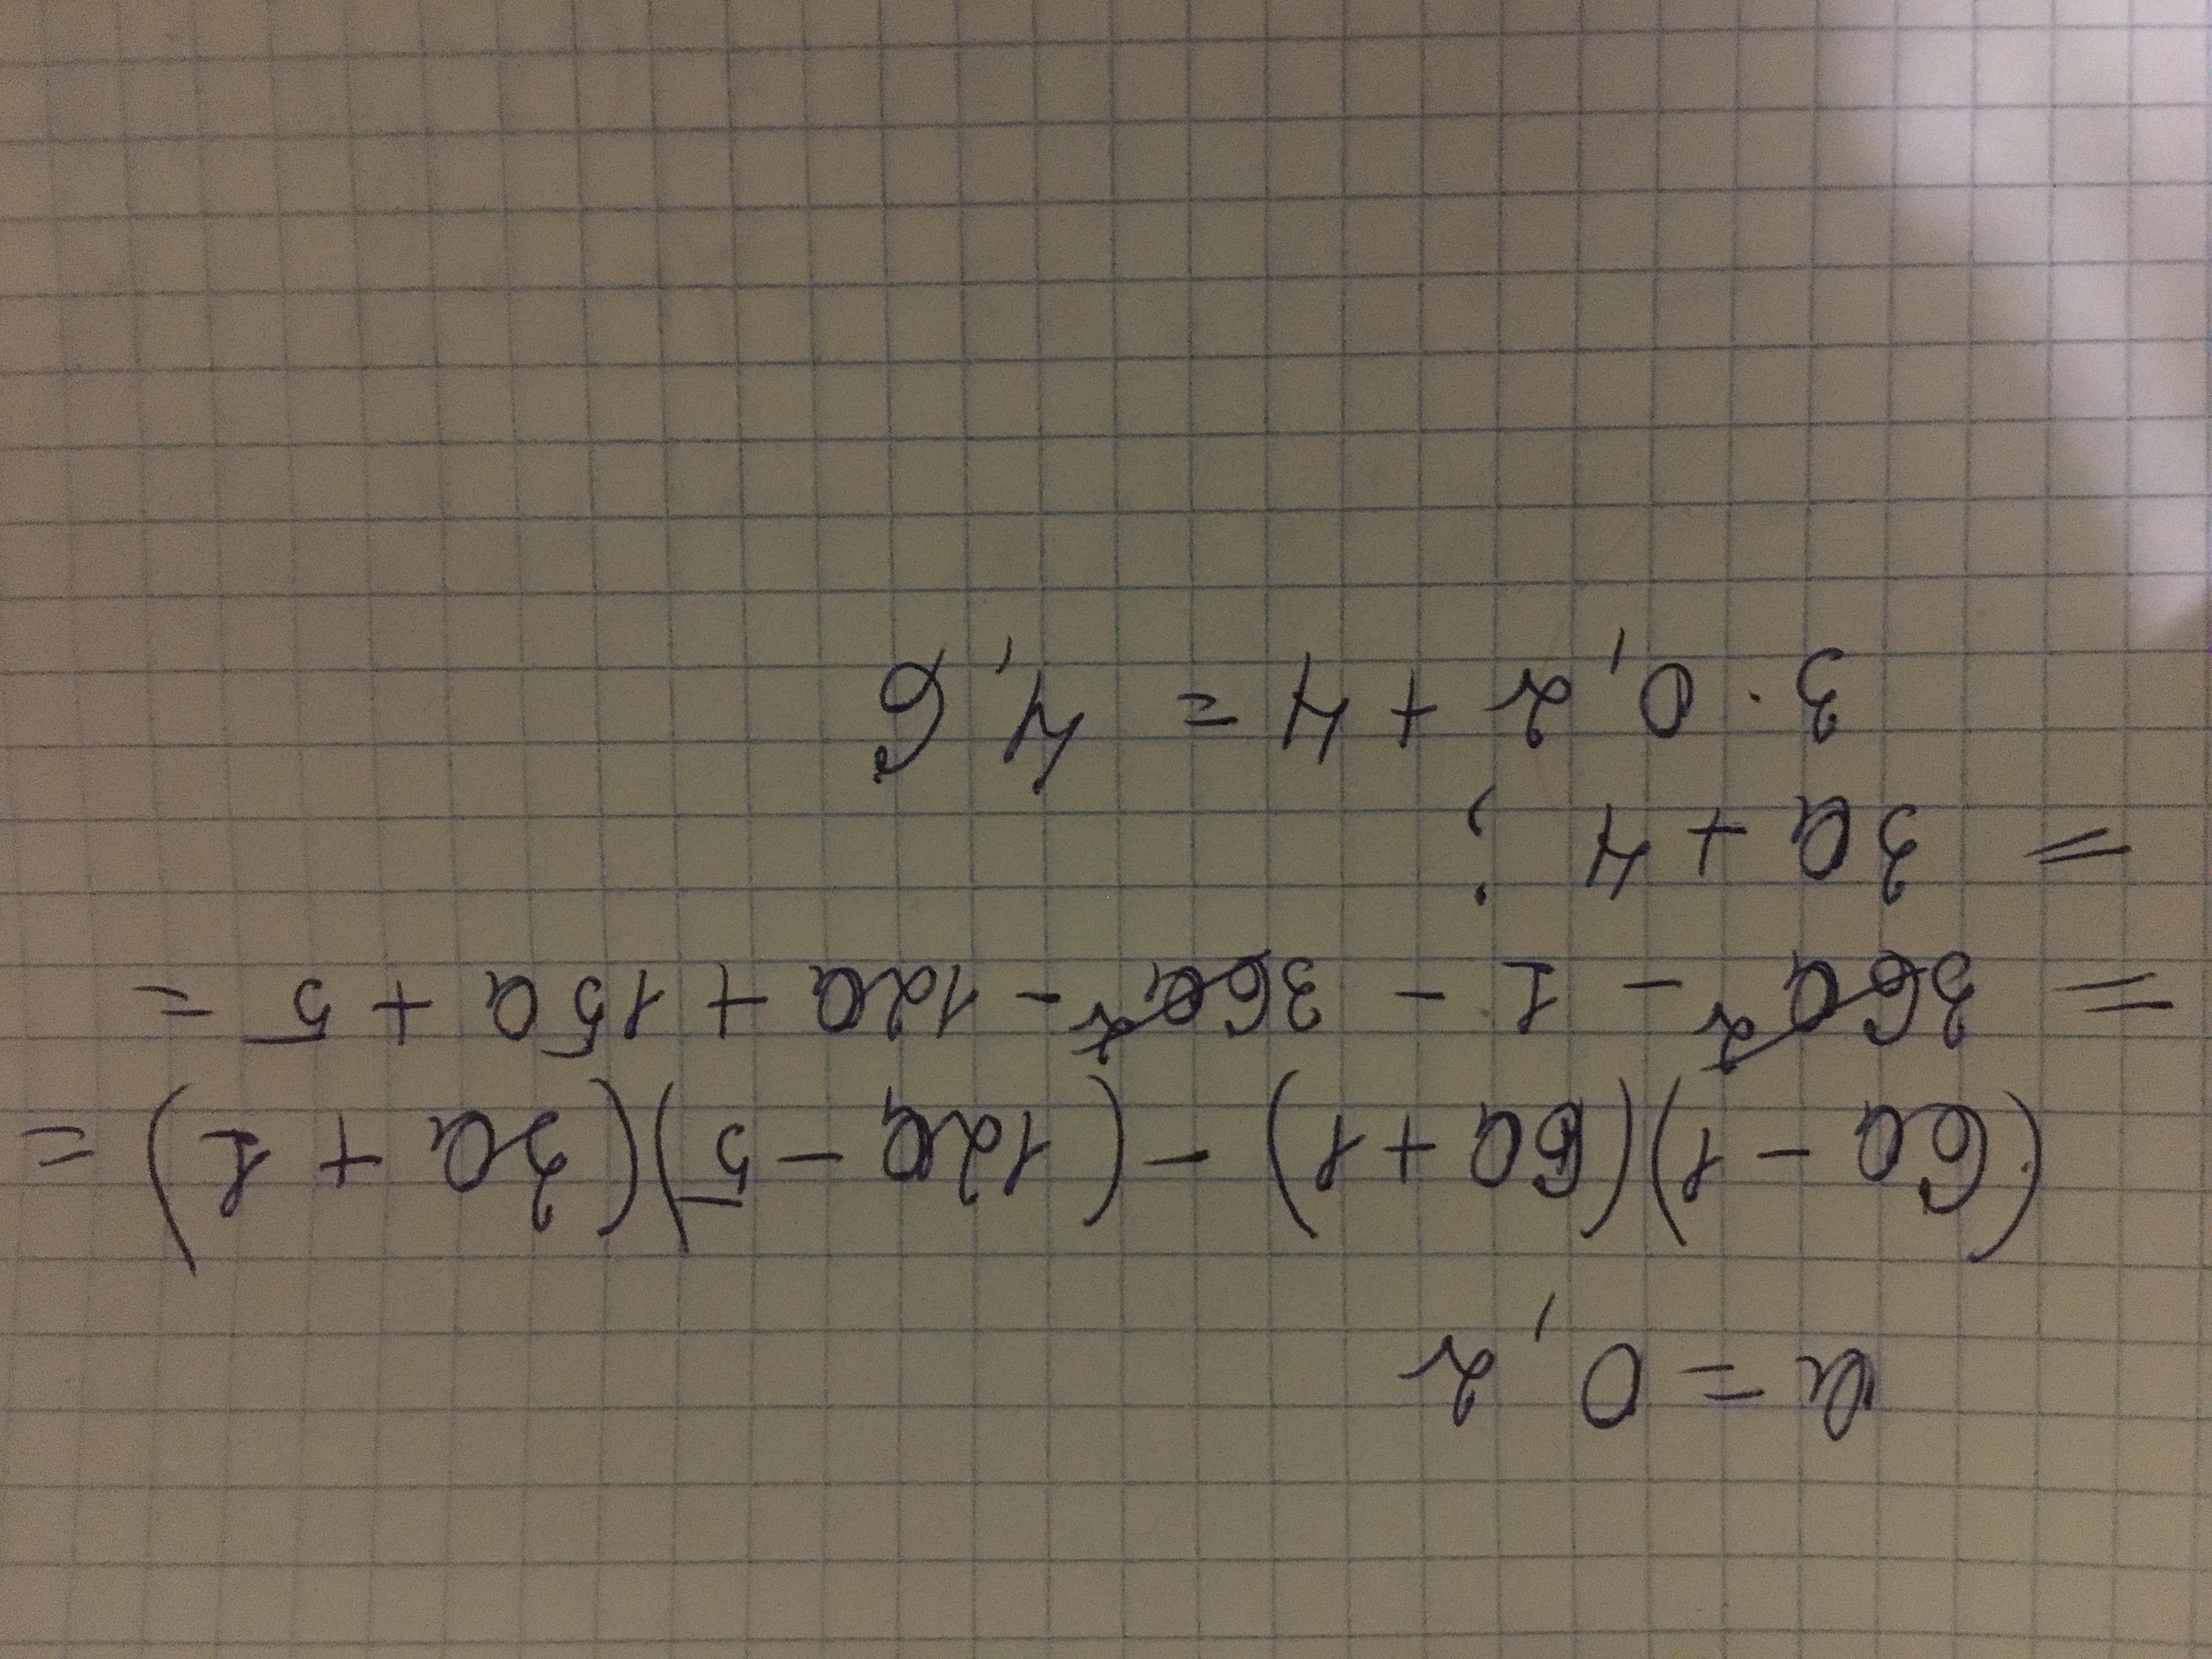 a = 0,2
(6a - 1)(6a + 1) - (12a - 5)(3a + 1) =
= 36a² - 1 - 36a² - 12a + 15a + 5 =
= 3a + 4 ;
3 · 0,2 + 4 = 4,6